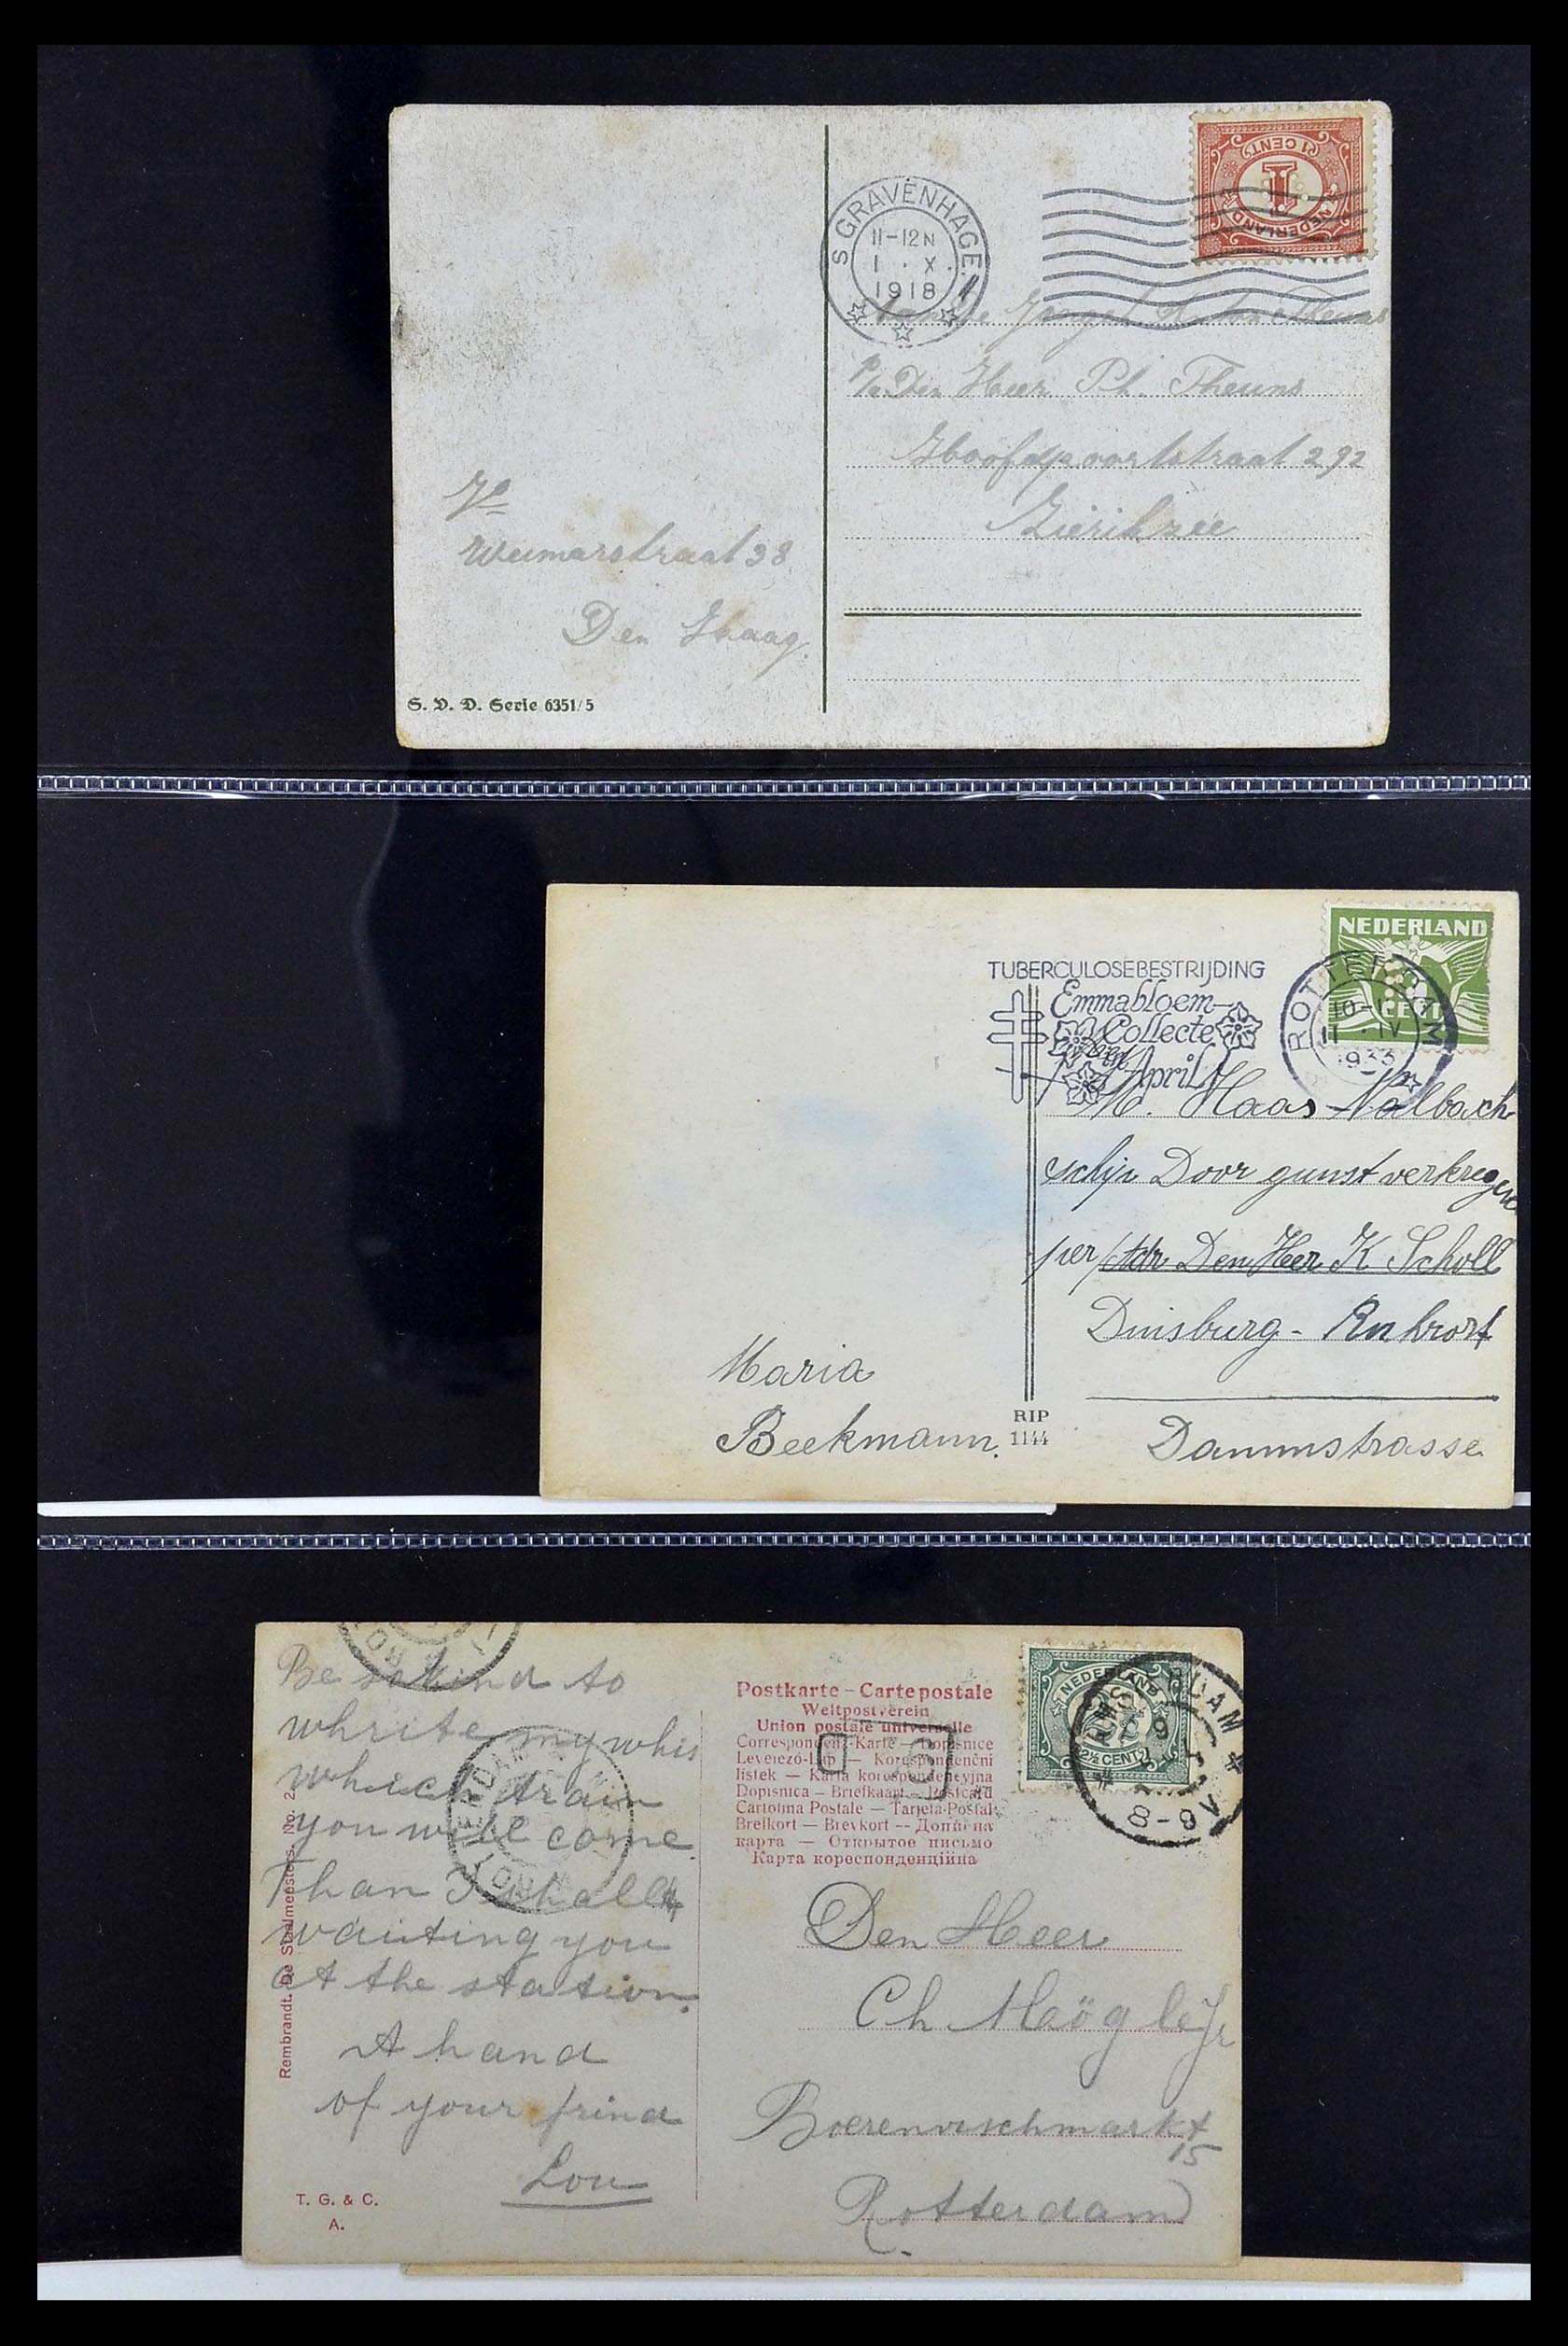 1 CENT
NEDERLAND
S GRAVENHAGE. 1
11-12N
1 . X.
1918
p/a Den Heer Ph. Theuns
Hoofdpoortstraat 292
Zierikzee
Weimarstraat 38
Den Haag.
S. V. D. Serie 6351/5
NEDERLAND
CENT
TUBERCULOSEBESTRIJDING
Emmabloem-
Collecte
April
ROTTERDAM
10-1
11 IV
1933
M. Haas Nalbach
schip Door gunst verkregen
per/adr. Den Heer K Scholl
Duisburg - Ruhrort
Dammstrasse
Maria
Beekmann.
RIP
1144
Be so kind to
whrite my whis
which train
you will come.
Than I shall
waiting you
at the station.
A hand
of your frind
Lou
Rembrandt. De Staalmeesters. No. 2.
T. G. & C.
A.
Postkarte – Carte postale
Weltpostverein
Union postale universelle
Correspondenz-Karte — Dopisnice
Levelező-Lap — Korespondenční
lístek — Karta korespondencyjna
Dopisnica — Briefkaart — Postcard
Cartolina Postale — Tarjeta Postal
Brefkort — Brevkort -- Допiсна
карта — Открытое письмо
Карта кореспонденційна
NEDERLAND
2½
2½ CENT
8-9V
Den Heer
Ch Maögle Jr
Boerenvischmarkt
15
Rotterdam